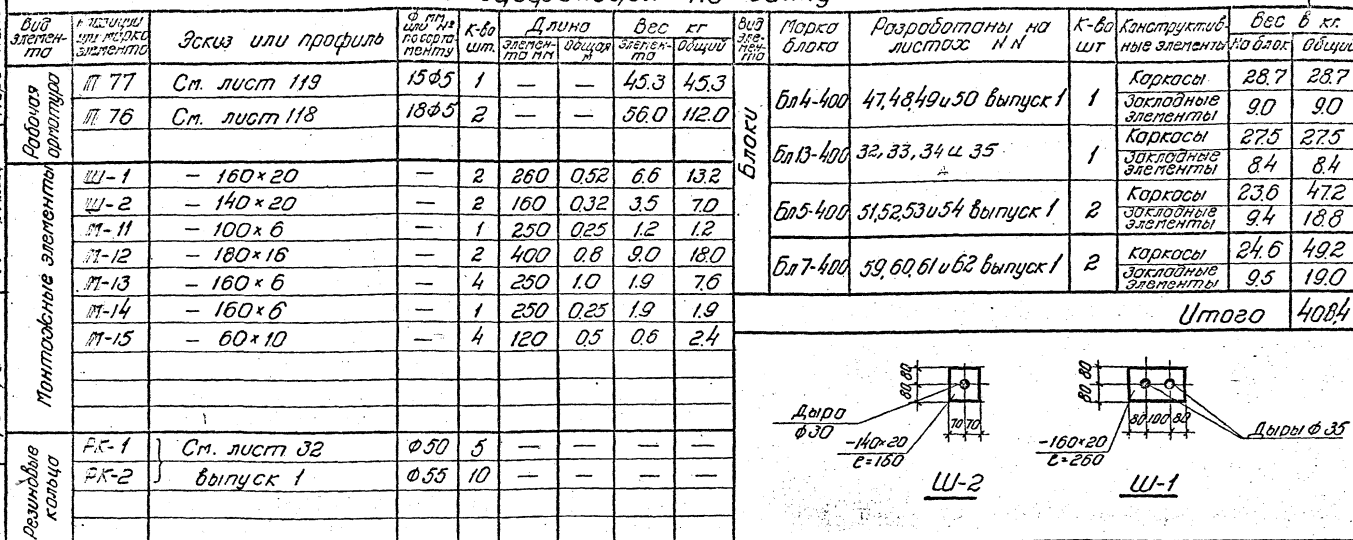 Вид элемен-та | № позиции или марка элемента | Эскиз или профиль | Ф мм или №№ по сорта-менту | К-во шт. | Длина | Вес кг
элемен-та мм | Общая м | элемен-та | Общий
Рабочая арматура
П 77 | См. лист 119 | 15Ф5 | 1 | — | — | 45.3 | 45.3
П 76 | См. лист 118 | 18Ф5 | 2 | — | — | 56.0 | 112.0
Монтажные элементы
Ш-1 | – 160×20 | — | 2 | 260 | 0.52 | 6.6 | 13.2
Ш-2 | – 140×20 | — | 2 | 160 | 0.32 | 3.5 | 7.0
М-11 | – 100×6 | — | 1 | 250 | 0.25 | 1.2 | 1.2
М-12 | – 180×16 | — | 2 | 400 | 0.8 | 9.0 | 18.0
М-13 | – 160×6 | — | 4 | 250 | 1.0 | 1.9 | 7.6
М-14 | – 160×6 | — | 1 | 250 | 0.25 | 1.9 | 1.9
М-15 | – 60×10 | — | 4 | 120 | 0.5 | 0.6 | 2.4
Резиновые кольца
РК-1 | См. лист 32 | Ф50 | 5 | — | — | — | —
РК-2 | выпуск 1 | Ф55 | 10 | — | — | — | —
Вид эле-мен-та | Марка блока | Разработаны на листах №№ | К-во шт | Конструктив-ные элементы | Вес в кг.
На блок | Общий
Блоки
Бл4-400 | 47,48,49 и 50 выпуск 1 | 1 | Каркасы | 28.7 | 28.7
Закладные элементы | 9.0 | 9.0
Бл13-400 | 32, 33, 34 и 35 | 1 | Каркасы | 27.5 | 27.5
Закладные элементы | 8.4 | 8.4
Бл5-400 | 51,52,53 и 54 выпуск 1 | 2 | Каркасы | 23.6 | 47.2
Закладные элементы | 9.4 | 18.8
Бл7-400 | 59, 60, 61 и 62 выпуск 1 | 2 | Каркасы | 24.6 | 49.2
Закладные элементы | 9.5 | 19.0
Итого | 408.4
80 80
Дыра Ф30
70 70
–140×20
ℓ=160
Ш-2
80 80
80 100 80
Дыры Ф35
–160×20
ℓ=260
Ш-1